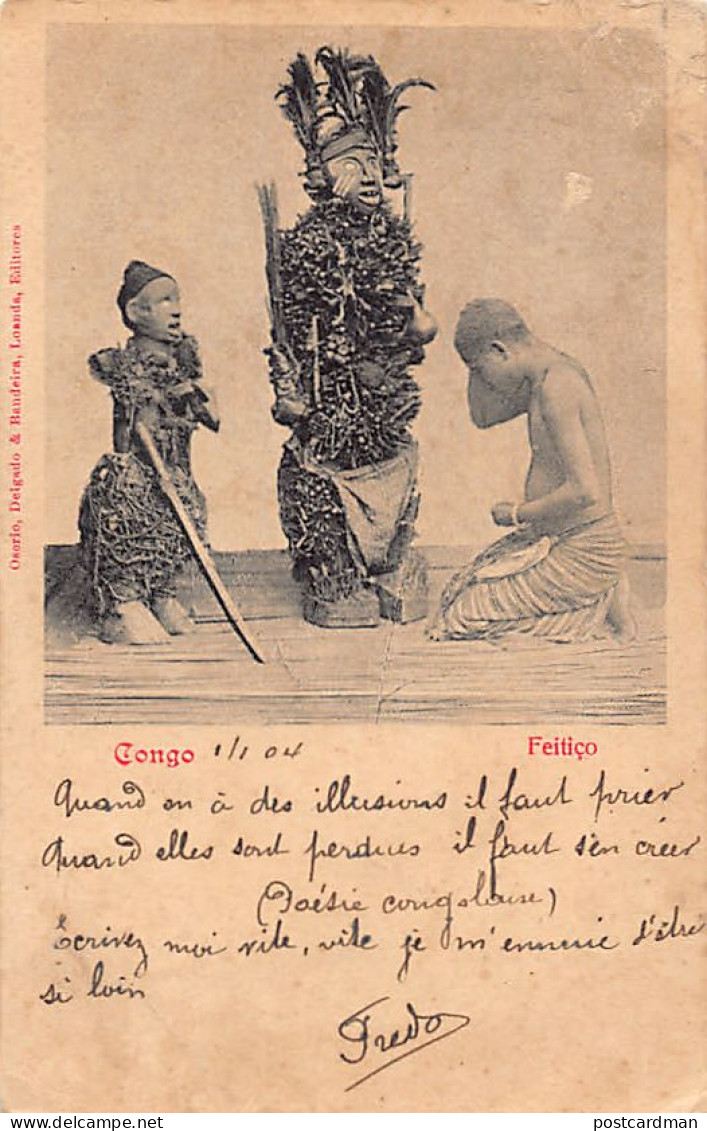 Osorio, Delgado & Bandeira, Loanda, Editores
Congo 1/1 04 Feitiço
Quand on à des illusions il faut prier
Quand elles sont perdues il faut s'en créer
(Poésie congolaise)
Ecrivez moi vite, vite je m'ennuie d'être
si loin
Fredo
postcardman